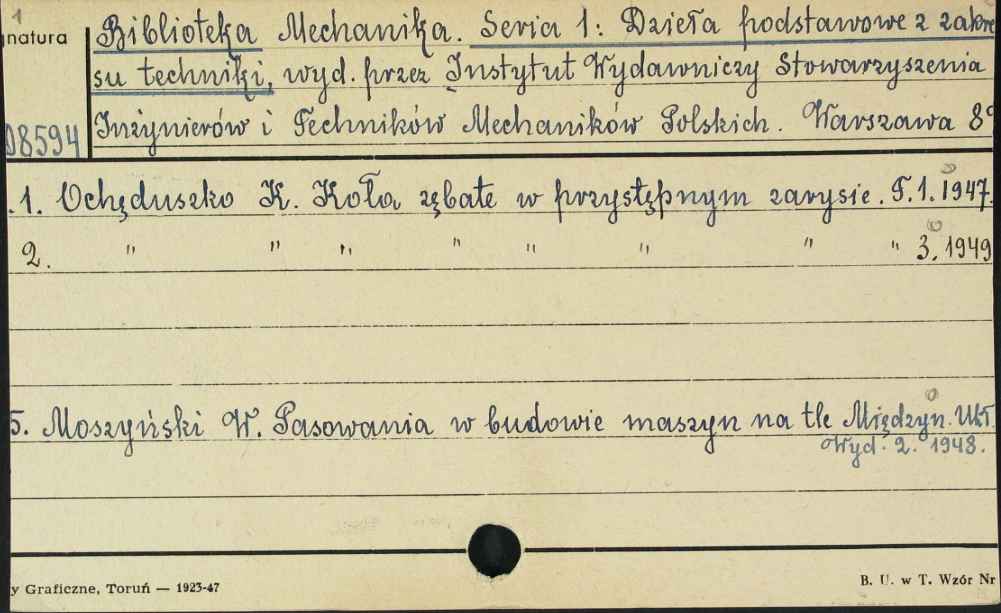 1
natura
Biblioteka Mechanika. Seria 1: Dzieła podstawowe z zakre
su techniki, wyd. przez Instytut Wydawniczy Stowarzyszenia
Inżynierów i Techników Mechaników Polskich. Warszawa 8°
08594
.1. Ochęduszko K. Koła zębate w przystępnym zarysie. T.1. 1947.
2. " " " " " " " " 3. 1949
5. Moszyński W. Pasowania w budowie maszyn na tle Międzyn. Ukł.
Wyd. 2. 1948.
y Graficzne, Toruń — 1923-47
B. U. w T. Wzór Nr